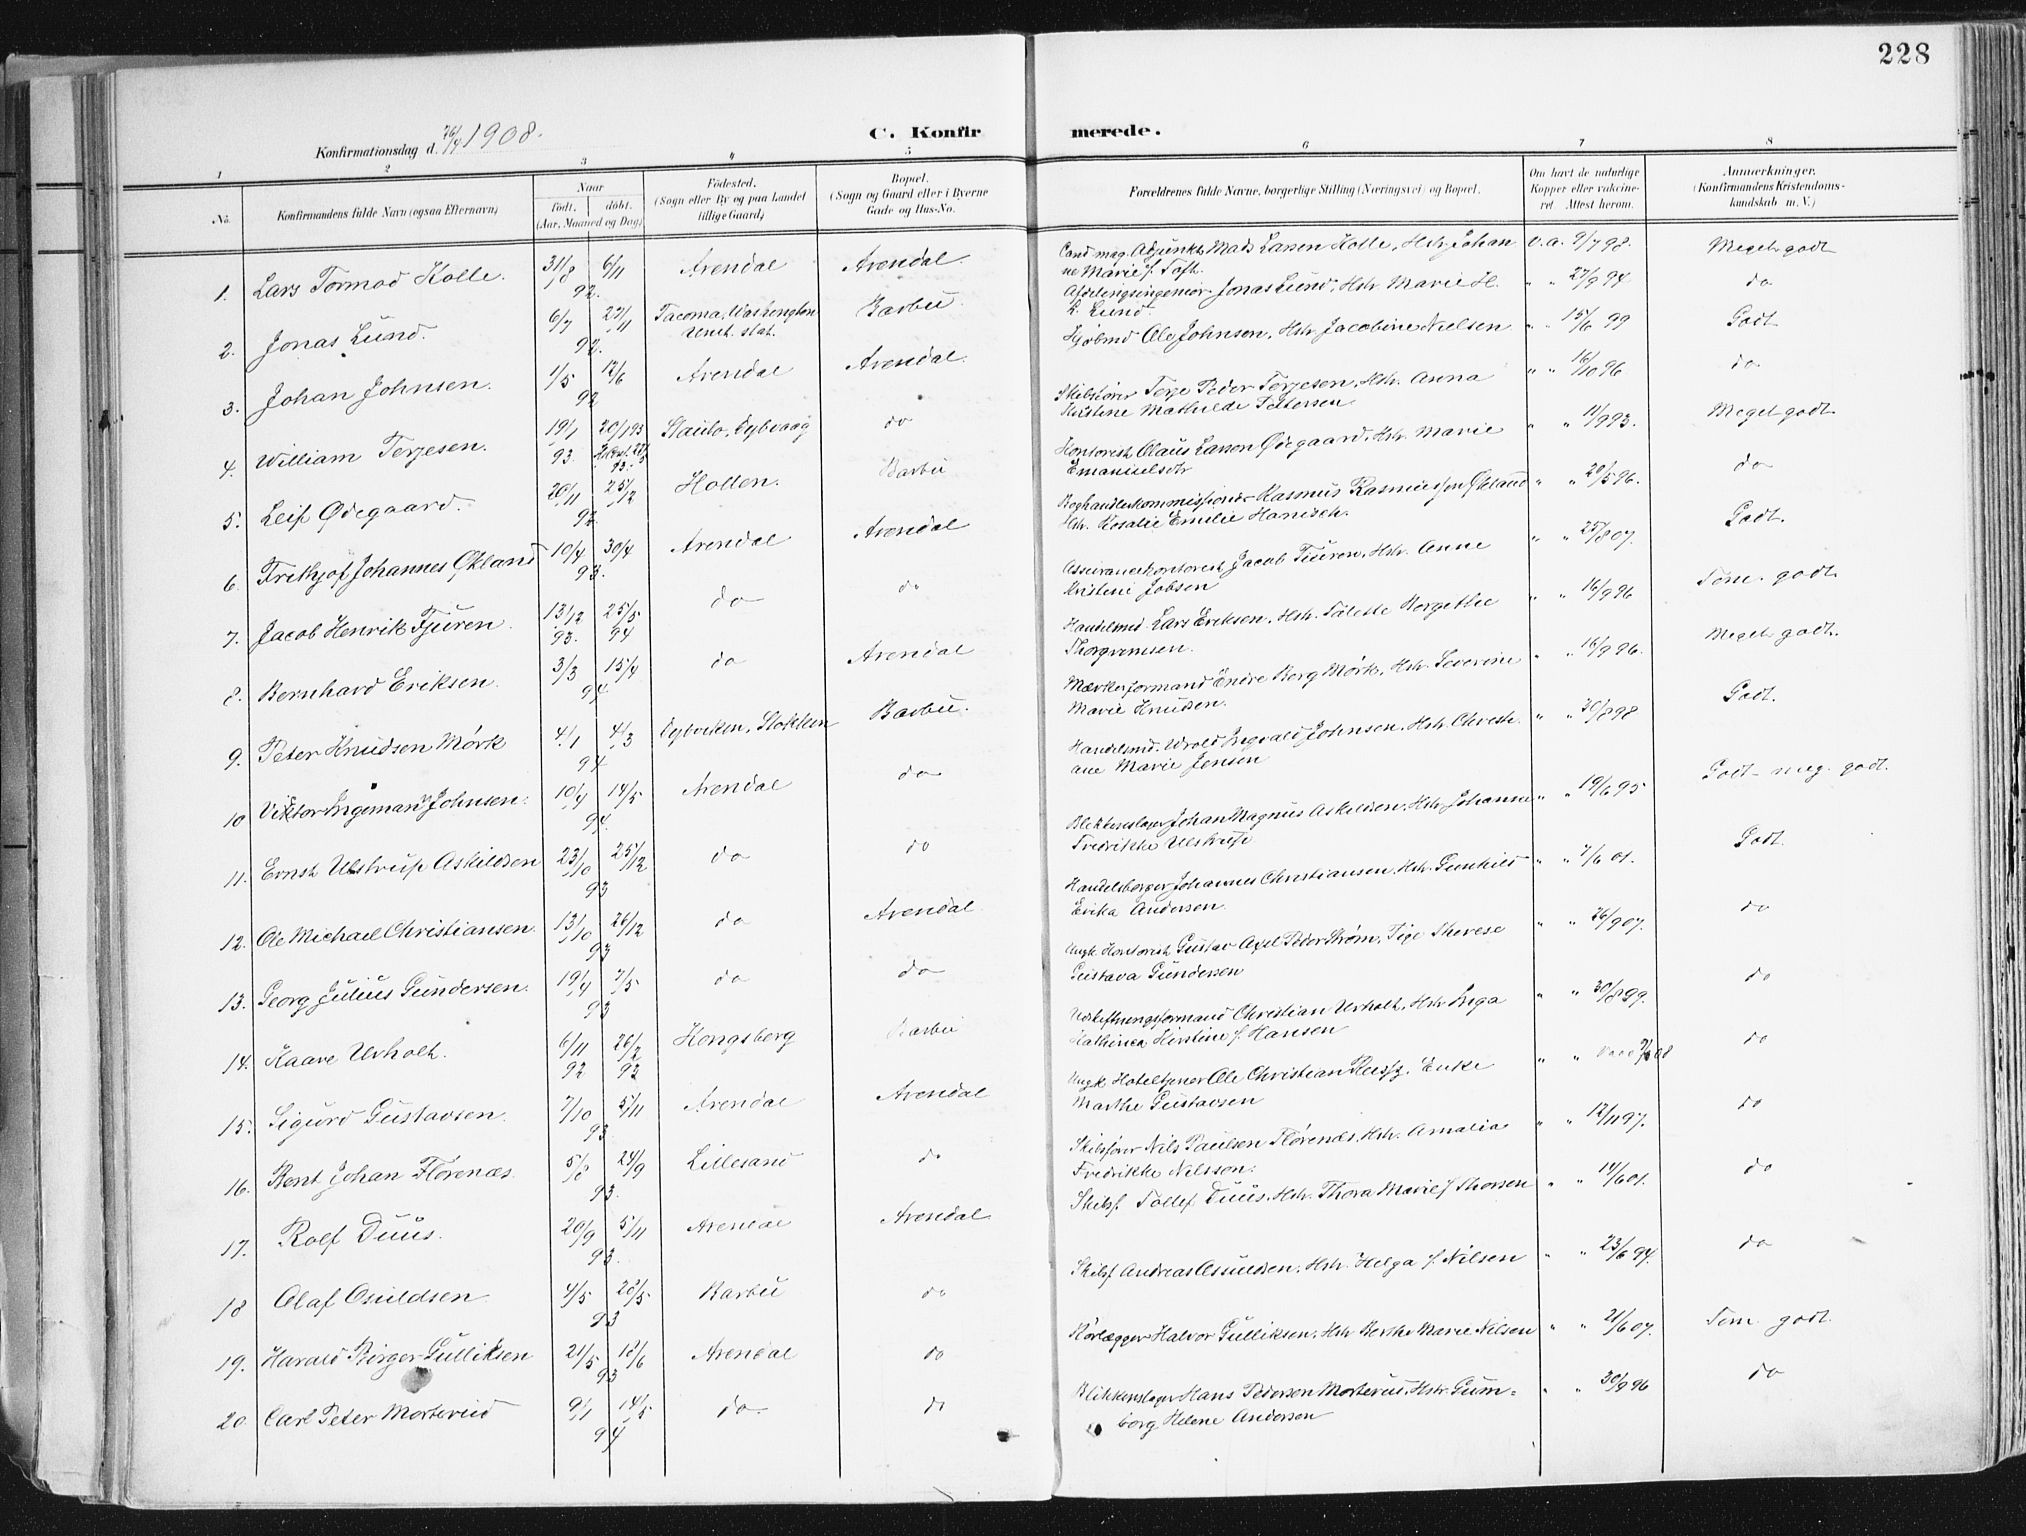 228
Konfirmationsdag d. 26/4 1908.
C. Konfirmerede.
1 2 3 4 5 6 7 8
No. Konfirmandens fulde Navn (ogsaa Efternavn) Naar Födt. döbt. (Aar, Maaned og Dag) Födested. (Sogn eller By og paa Landet tillige Gaard) Bopæl. (Sogn og Gaard eller i Byerne Gade og Hus-No. Forældrenes fulde Navne, borgerlige Stilling (Næringsvei) og Bopæl. Om havt de naturlige Kopper eller vaccineret. Attest herom. Anmærkninger. (Konfirmandens Kristendomskundskab m. V.)
1. Lars Tormod Kolle. 31/8 6/11 92. Arendal Arendal. Cand. mag. Adjunkt Mads Larsen Kolle, Hstr. Johanne Marie f. Toft. v. a. 9/7 98. Meget godt
2. Jonas Lund. 6/7 27/11 92. Tacoma, Washington Unit. stat. Barbu. Afdelingsingeniør Jonas Lund, Hstr. Marie H. L. Lund " " 27/9 94 do
3. Johan Johnsen. 1/5 12/6 92 Arendal Arendal. Kjøbmd Ole Johnsen, Hstr. Jacobine Nielsen " " 15/6 99 Godt
4. William Terjesen. 19/1 93. 20/1 93 Dybvaag do Skibsfører Terje Peder Terjesen, Hstr. Anna Kristine Mathilde Pettersen " " 16/10 96. do.
5. Leif Ødegaard. 20/11 25/12 92. Holten. Barbu Kontorist Olaus Larsen Ødegaard, Hstr. Marie Emanuelsdtr " " 11/9 93. Meget godt.
6. Frithjof Johannes Økland 10/4 30/4 93. Arendal Arendal Boghandlerkommissionær Rasmus Rasmussen Økland Hstr. Rosalie Emilie Hanisch. " " 20/5 96. do
7. Jacob Henrik Tjuren. 13/12 93. 25/5 94 do do Assurancekontorist Jacob Tjuren, Hstr. Anne Kristine Jobsen " " 25/8 07. Godt.
8. Bernhard Eriksen. 3/3 15/4 94 do Arendal Handelsmd. Lars Eriksen, Hstr. Tolette Borgethe " " 16/9 96 Tem. godt
9. Peter Knudsen Mørk 4/1 4/3 94 Stokken Barbu. Endre Berg Mørk, Hstr. Severine Marie Knudsen. " " 16/9 96. Meget godt.
10 Viktor Ingeman Johnsen. 10/4 14/5 94. Arendal do Handelsmd. Ingvald Johnsen, Hstr. Christiane Marie Jensen " " 30/8 98 Godt.
11. Ernst Ulstrup Askildsen 23/10 25/12 93 do do Blikkenslager Johan Magnus Askildsen, Hstr. Johanne Fredrikke Ulstrup " " 19/6 95 Godt - meg. godt.
12. Ole Michael Christiansen. 13/10 26/12 93 do Arendal. Handelsborger Johannes Christiansen, Hstr. Gunhild Erika Andersen. " " 7/6 01. Godt.
13. Georg Julius Gundersen. 19/4 7/5 93 do do Ungk. Kontorist Gustav Axel Peder Strøm, Pige Therese Gustava Gundersen " " 26/9 07. do
14. Kaare Urholt. 6/11 92 26/2 92 Kongsberg Barbu Udskiftningsformand Christian Urholt, Hstr. Inga Kathinca Kirstine f. Hansen " " 30/8 99. do
15. Sigurd Gustavsen. 7/10 5/11 93 Arendal Arendal Ungk. Hoteltjener Ole Christian Enke Marthe Gustavsen " " 08 do
16. Bent Johan Flørenæs. 5/8 24/9 93. Lillesand do Skibsfører Nils Paulsen Flørenæs, Hstr. Amalia Fredrikke Nilsson. " " 12/11 97. do
17. Rolf Duus. 20/9 5/11 93. Arendal Arendal Skibsf. Tollef Duus, Hstr. Thora Marie f. Thorsen " " 14/6 01. do
18 Olaf Osuldsen 4/5 28/5 93 Barbu do Skibsf. Andreas Osuldsen, Hstr. Helga f. Nilsen " " 23/6 94. do
19. Harald Birger Gulliksen 21/5 18/6 93 Arendal do Rørlægger Halvor Gulliksen, Hstr Berthe Marie Nilsen " " 21/6 07. Tem. godt
20. Carl Peter Morterud 9/1 14/5 94 do. do Blikkenslager Hans Pedersen Morterud, Hstr. Gumborg Helene Andersen " " 30/9 96 do